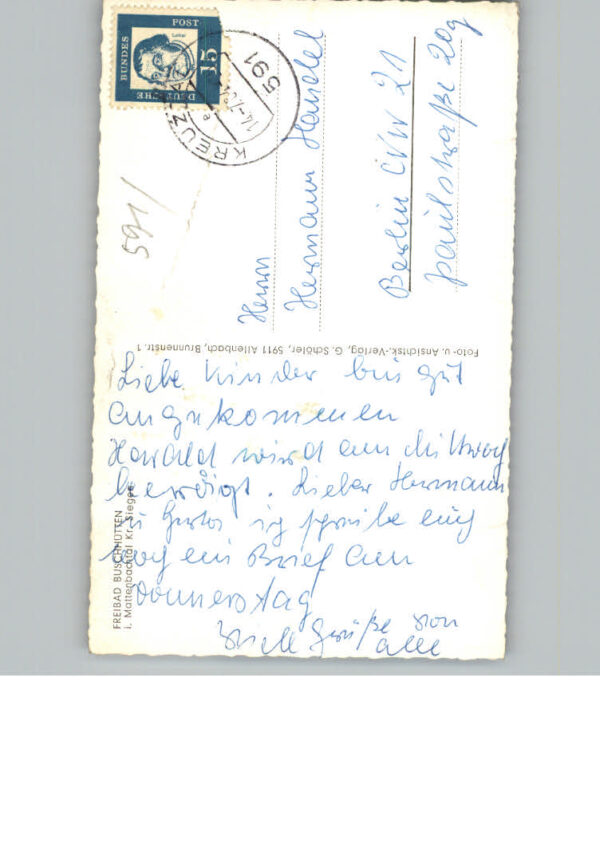 DEUTSCHE
BUNDES
POST
15
Luther
KREUZTAL
591
591/
Herrn
Hermann Handel
Berlin NW 21
paulstraße 20g
Foto- u. Ansichtsk.-Verlag, G. Schöler, 5911 Allenbach, Brunnenstr. 1
FREIBAD BUSCHHÜTTEN
i. Mattenbachtal Kr. Siegen
Liebe Kinder bin gut
angekommen
Harald wird am Mittwoch
beerdigt. Lieber Hermann
u ich schreibe euch
noch ein Brief am
Donnerstag
Viele Grüße von
alle